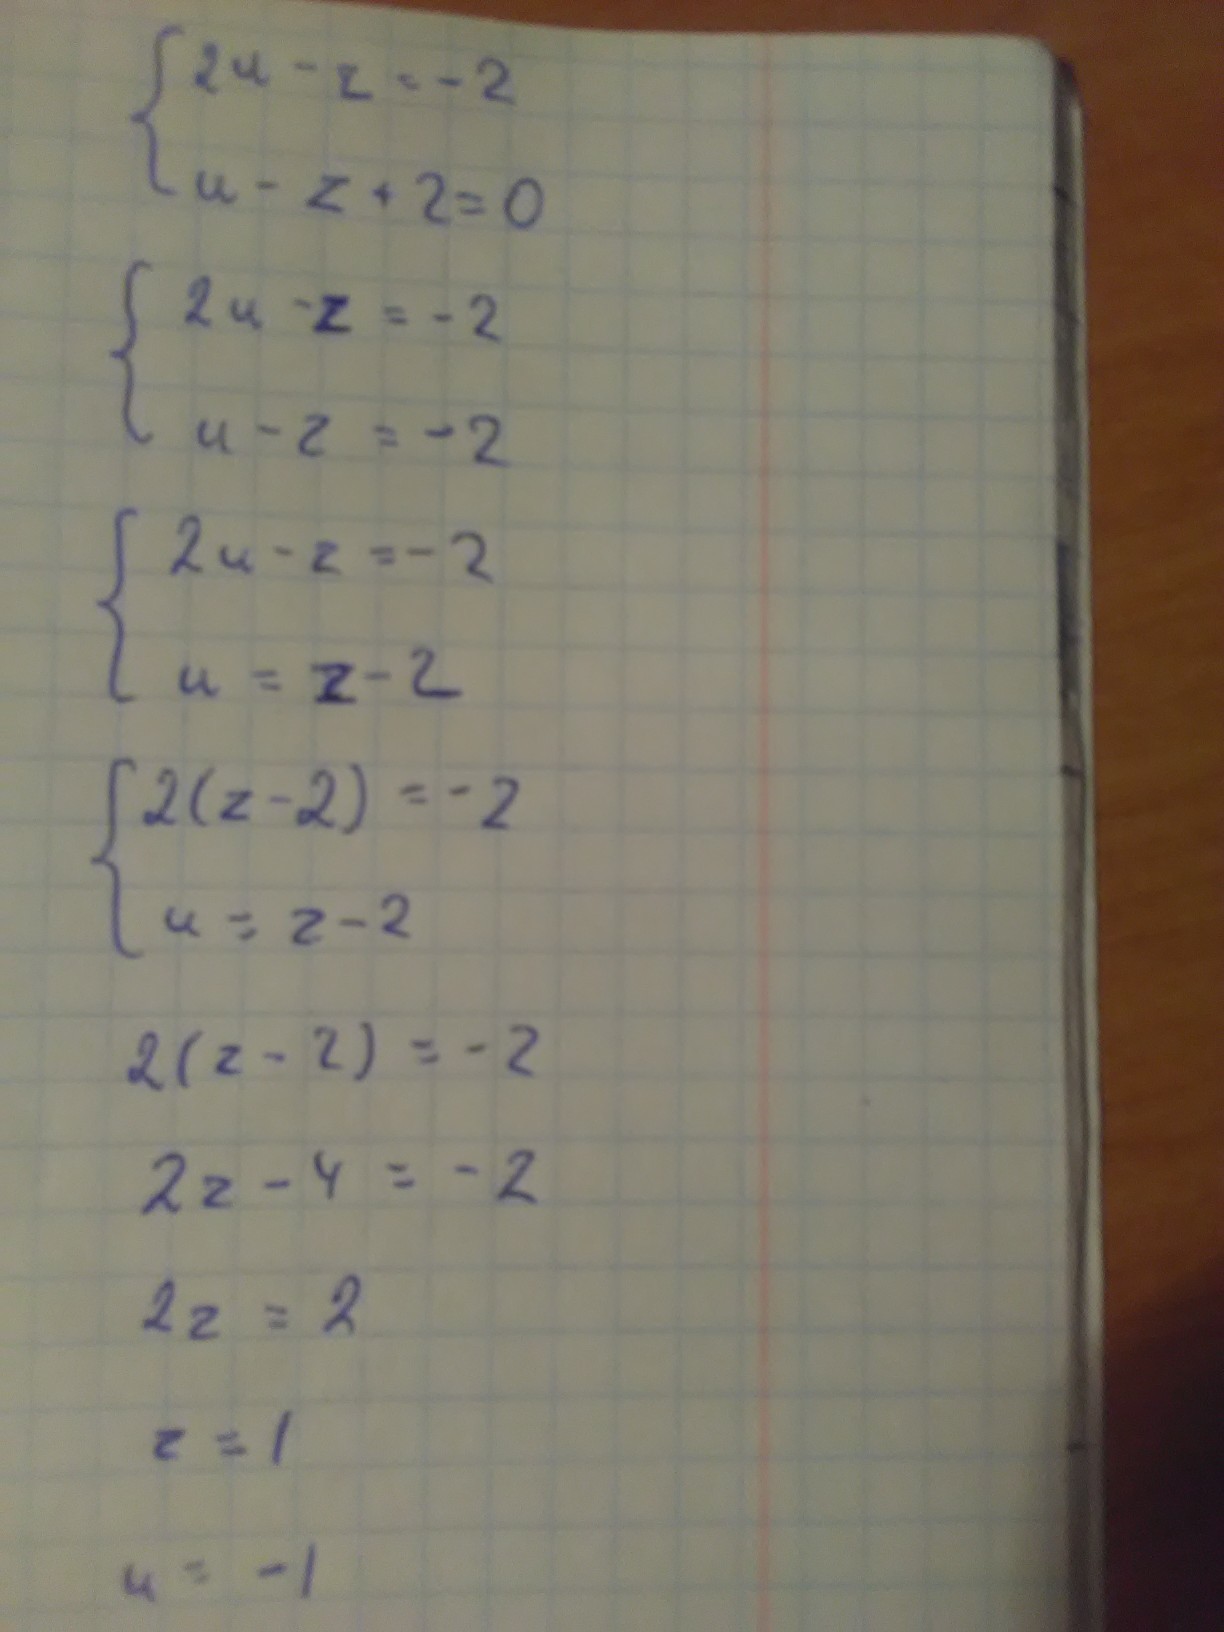 2u - z = -2
u - z + 2 = 0
2u - z = -2
u - z = -2
2u - z = -2
u = z - 2
2(z - 2) = -2
u = z - 2
2(z - 2) = -2
2z - 4 = -2
2z = 2
z = 1
u = -1